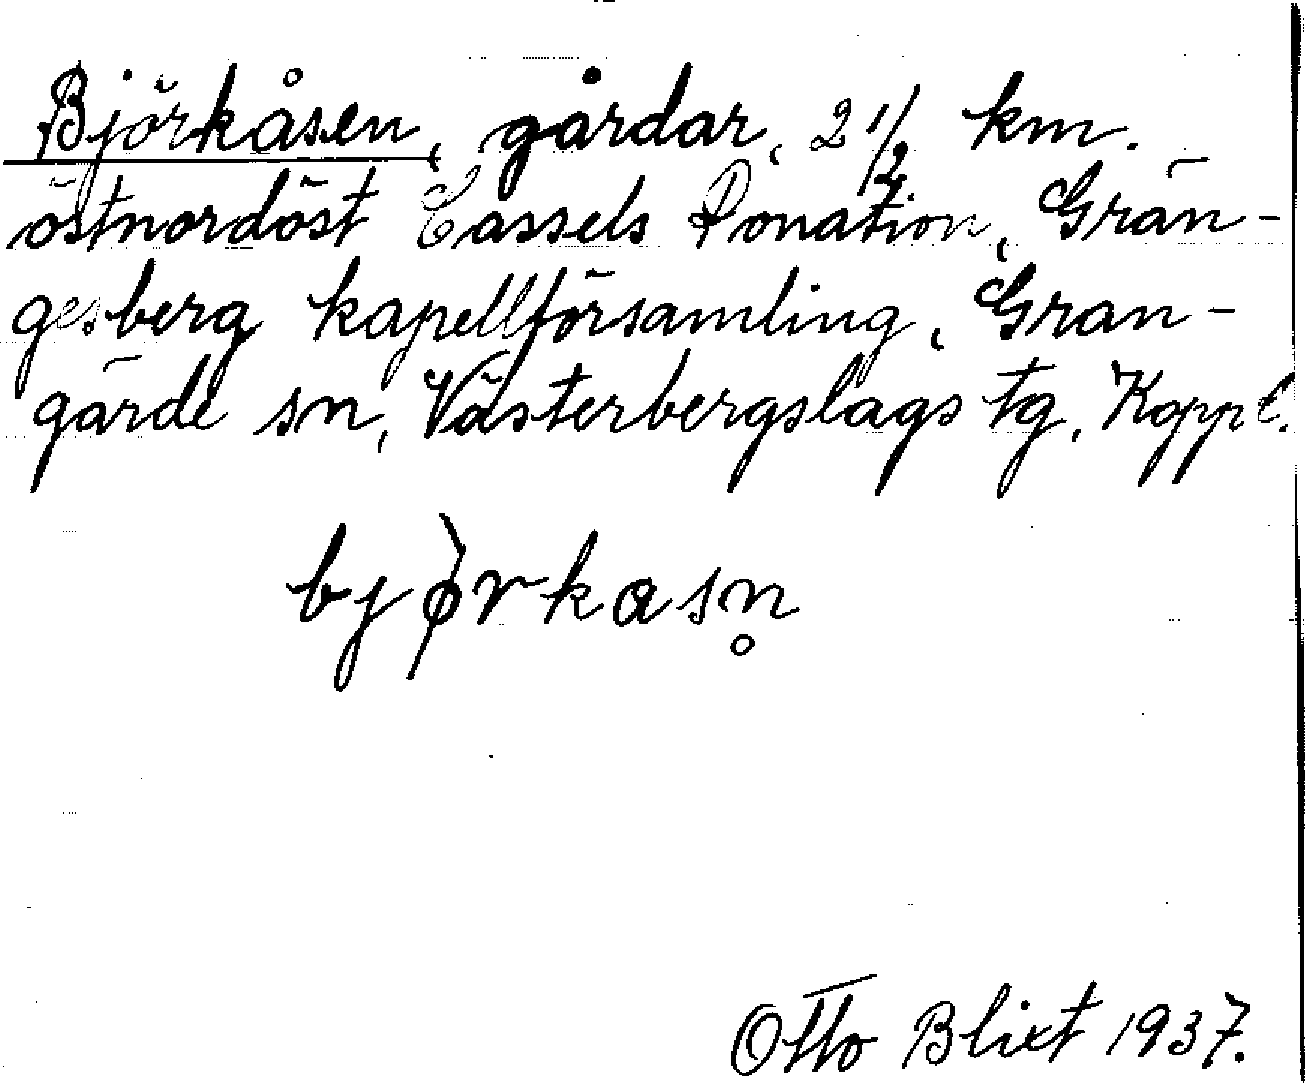 Björkåsen, gårdar, 2 1/2 km.
östnordöst Cassels Donation, Grän-
gesberg kapellförsamling, Gran-
gärde sn, Västerbergslags tg, Koppl.
bjø̀rkasn̥
Otto Blixt 1937.